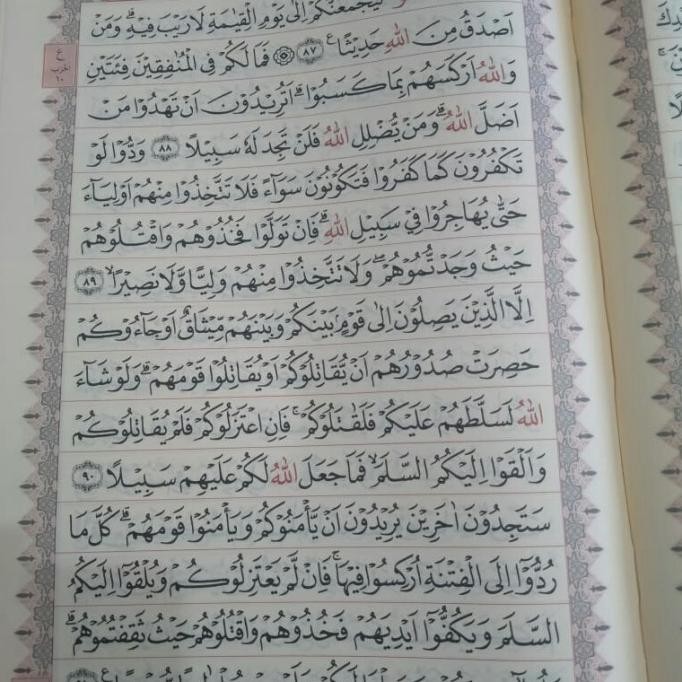 لَيَجْمَعَنَّكُمْ اِلٰى يَوْمِ الْقِيٰمَةِ لَا رَيْبَ فِيْهِ ۗ وَمَنْ
اَصْدَقُ مِنَ اللّٰهِ حَدِيْثًا ࣖ ٨٧ ۞ فَمَا لَكُمْ فِى الْمُنٰفِقِيْنَ فِئَتَيْنِ
وَاللّٰهُ اَرْكَسَهُمْ بِمَا كَسَبُوْا ۗ اَتُرِيْدُوْنَ اَنْ تَهْدُوْا مَنْ
اَضَلَّ اللّٰهُ ۗ وَمَنْ يُّضْلِلِ اللّٰهُ فَلَنْ تَجِدَ لَهٗ سَبِيْلًا ٨٨ وَدُّوْا لَوْ
تَكْفُرُوْنَ كَمَا كَفَرُوْا فَتَكُوْنُوْنَ سَوَاۤءً فَلَا تَتَّخِذُوْا مِنْهُمْ اَوْلِيَاۤءَ
حَتّٰى يُهَاجِرُوْا فِيْ سَبِيْلِ اللّٰهِ ۗ فَاِنْ تَوَلَّوْا فَخُذُوْهُمْ وَاقْتُلُوْهُمْ
حَيْثُ وَجَدْتُّمُوْهُمْ ۖ وَلَا تَتَّخِذُوْا مِنْهُمْ وَلِيًّا وَّلَا نَصِيْرًا ۙ ٨٩
اِلَّا الَّذِيْنَ يَصِلُوْنَ اِلٰى قَوْمٍۢ بَيْنَكُمْ وَبَيْنَهُمْ مِّيْثَاقٌ اَوْ جَاۤءُوْكُمْ
حَصِرَتْ صُدُوْرُهُمْ اَنْ يُّقَاتِلُوْكُمْ اَوْ يُقَاتِلُوْا قَوْمَهُمْ ۗ وَلَوْ شَاۤءَ
اللّٰهُ لَسَلَّطَهُمْ عَلَيْكُمْ فَلَقٰتَلُوْكُمْ ۚ فَاِنِ اعْتَزَلُوْكُمْ فَلَمْ يُقَاتِلُوْكُمْ
وَاَلْقَوْا اِلَيْكُمُ السَّلَمَ ۙ فَمَا جَعَلَ اللّٰهُ لَكُمْ عَلَيْهِمْ سَبِيْلًا ٩٠
سَتَجِدُوْنَ اٰخَرِيْنَ يُرِيْدُوْنَ اَنْ يَّأْمَنُوْكُمْ وَيَأْمَنُوْا قَوْمَهُمْ ۗ كُلَّ مَا
رُدُّوْٓا اِلَى الْفِتْنَةِ اُرْكِسُوْا فِيْهَا ۚ فَاِنْ لَّمْ يَعْتَزِلُوْكُمْ وَيُلْقُوْٓا اِلَيْكُمُ
السَّلَمَ وَيَكُفُّوْٓا اَيْدِيَهُمْ فَخُذُوْهُمْ وَاقْتُلُوْهُمْ حَيْثُ ثَقِفْتُمُوْهُمْ ۗ
ع
الحزب
١٠